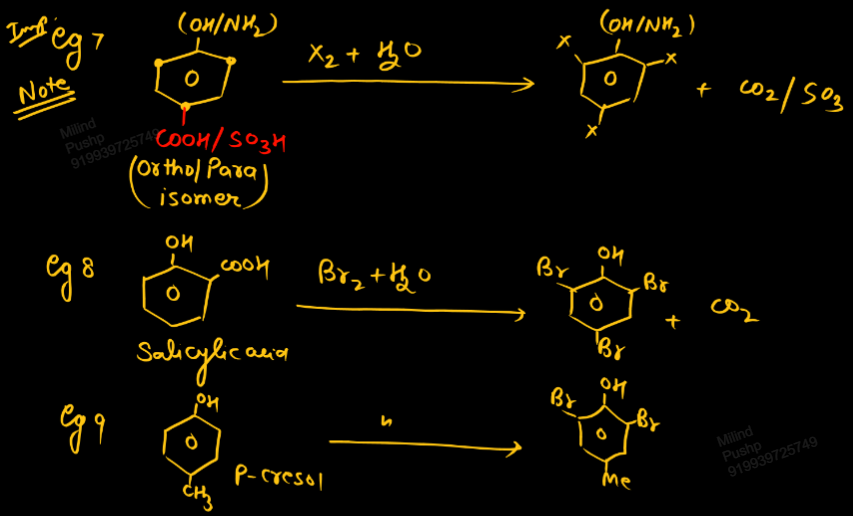 Imp eg 7
Note
(OH/NH₂)
COOH/SO₃H
(Ortho/Para isomer)
X₂ + H₂O
(OH/NH₂)
X
X
X
+ CO₂/SO₃
Milind
Pushp
919939725749
eg 8
OH
COOH
Salicylic acid
Br₂ + H₂O
OH
Br
Br
Br
+ CO₂
eg 9
OH
CH₃
P-cresol
"
OH
Br
Br
Me
Milind
Pushp
919939725749